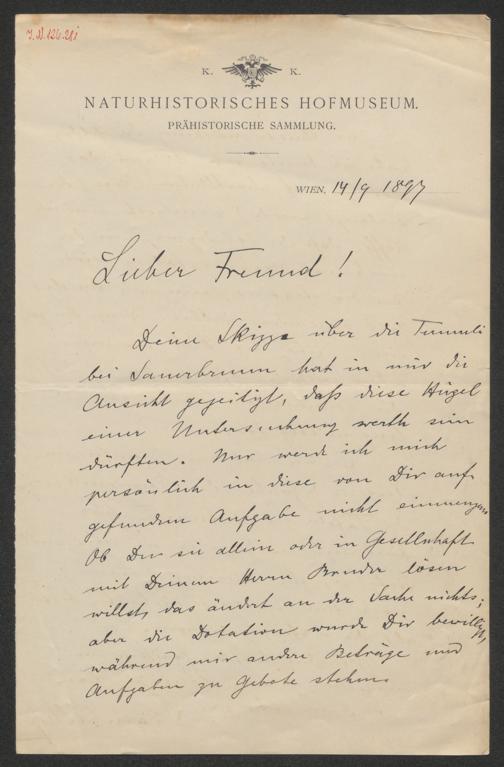 J.N. 126.281
K. K.
NATURHISTORISCHES HOFMUSEUM.
PRÄHISTORISCHE SAMMLUNG.
WIEN, 14/9 1897
Lieber Freund!
Deine Skizze über die Tumuli
bei Sauerbrunn hat in mir die
Ansicht gezeitigt, daß diese Hügel
einer Untersuchung werth sein
dürften. Nur werde ich mich
persönlich in diese von Dir auf-
gefundene Aufgabe nicht einmengen
Ob Du sie allein oder in Gesellschaft
mit Deinem Herrn Bruder lösen
willst, das ändert an der Sache nichts;
aber die Dotation wurde Dir bewilligt,
während mir andere Beträge und
Aufgaben zu Gebote stehen.